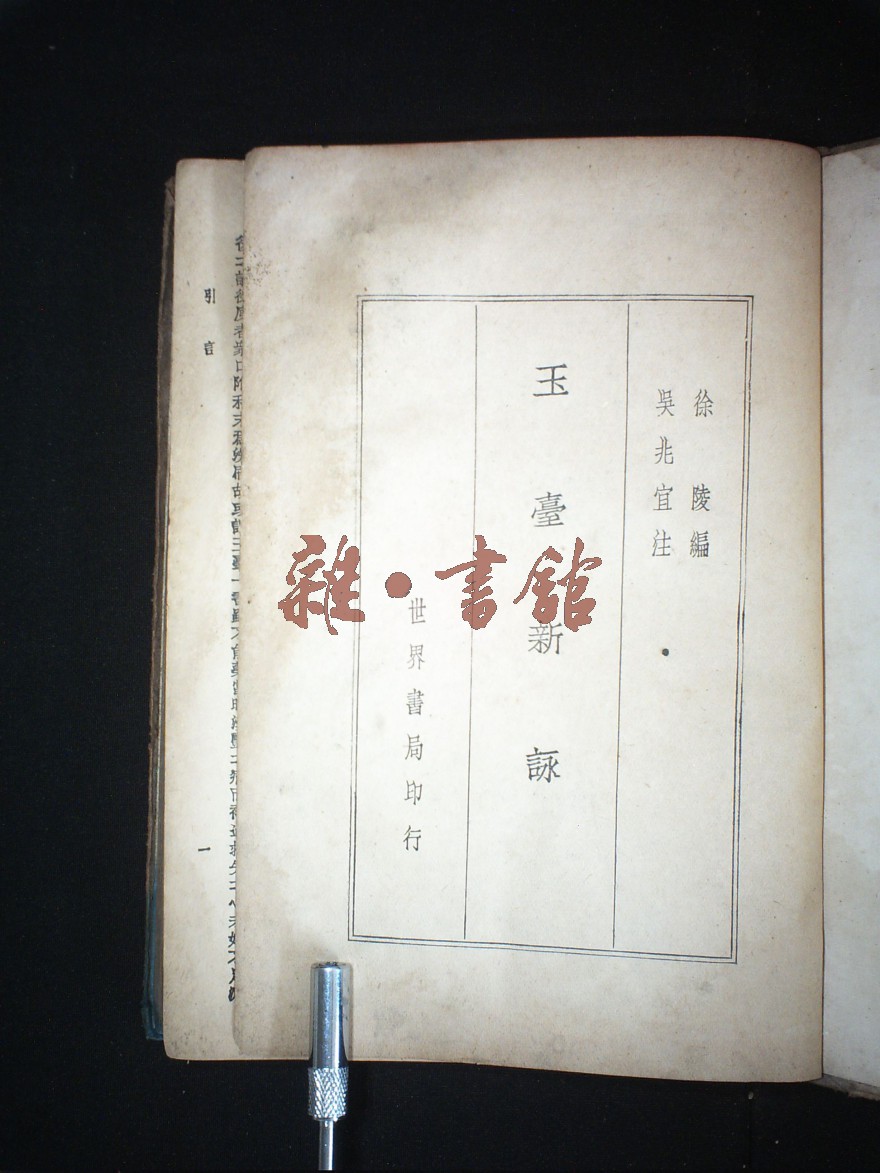 徐陵編
吳兆宜注
玉臺新詠
世界書局印行
雜·書館
引言
一